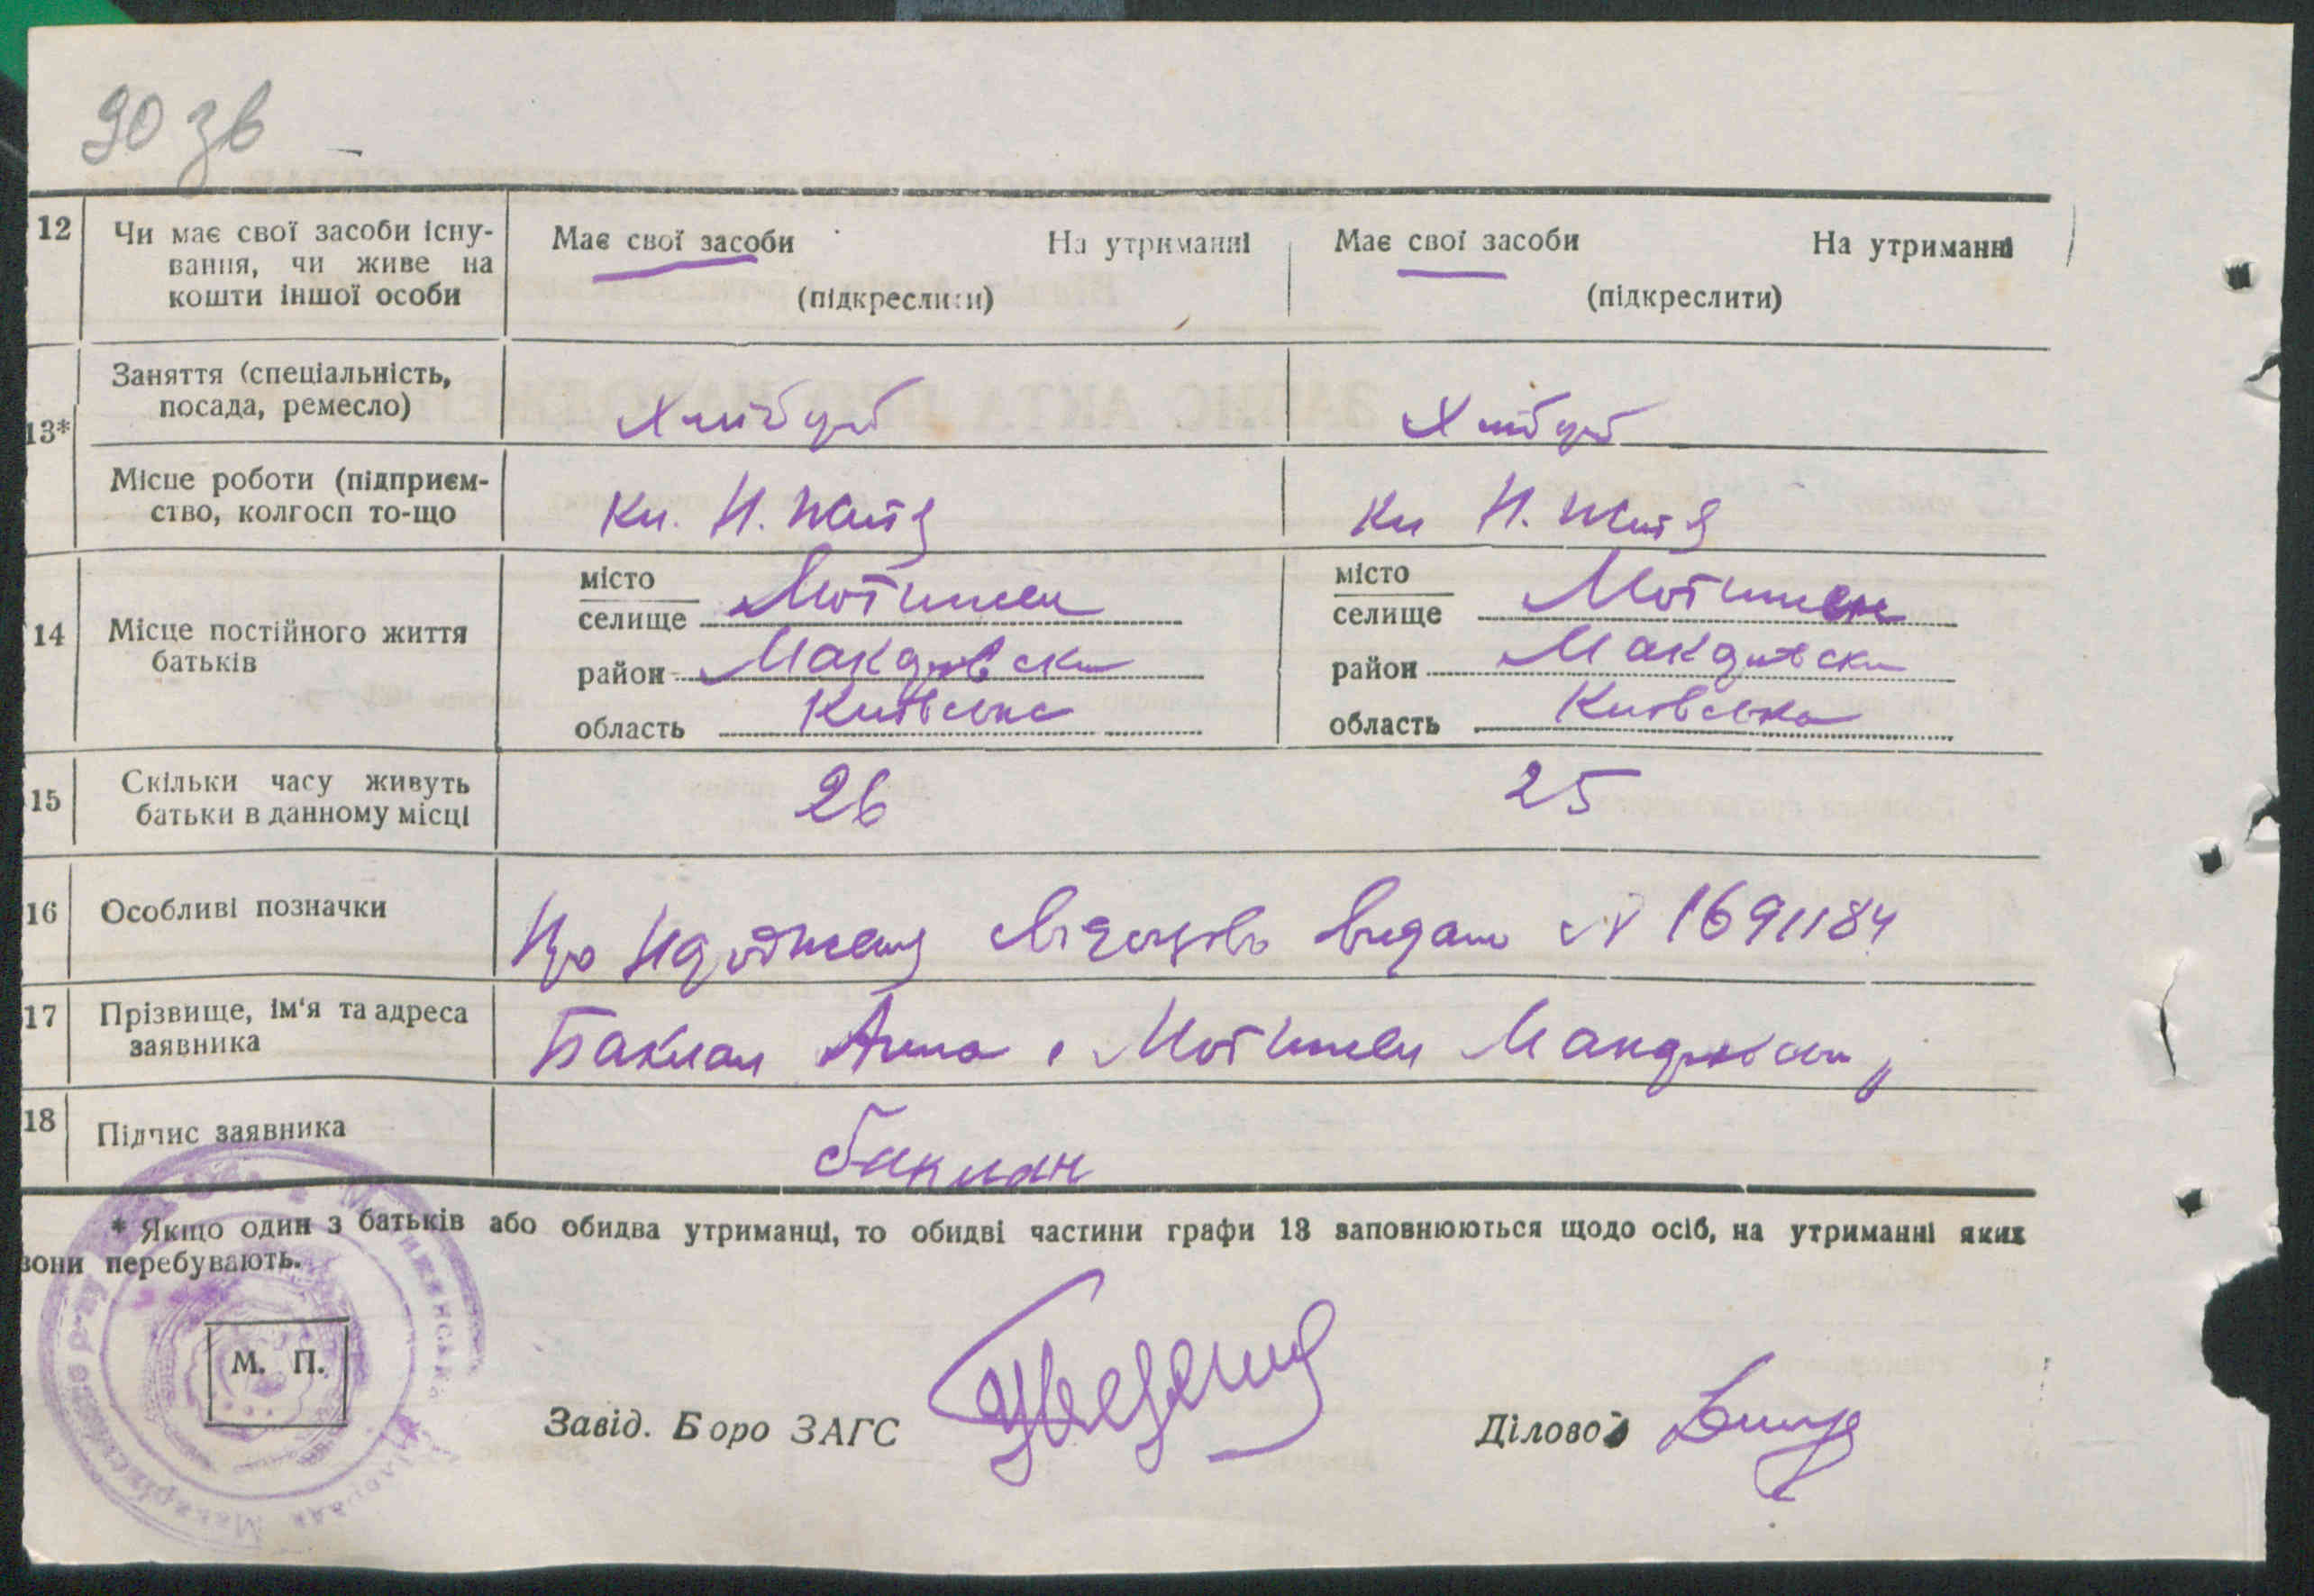 90 зв
12 Чи має свої засоби існу-
вання, чи живе на
кошти іншої особи
Має свої засоби На утриманні
(підкреслити)
Має свої засоби На утриманні
(підкреслити)
13*
Заняття (спеціальність,
посада, ремесло)
Хлібороб
Хлібороб
Місце роботи (підприєм-
ство, колгосп то-що
Кл. Н. Життя
Кл Н. Життя
14 Місце постійного життя
батьків
місто
селище Мотижин
район Макарівськ
область Київська
місто
селище Мотижин
район Макарівськ
область Київська
15 Скільки часу живуть
батьки в данному місці
26
25
16 Особливі позначки
Про народження свідоцтво видано № 1691184
17 Прізвище, ім'я та адреса
заявника
Баклан Анна с Мотижин Макарівськ
18 Підпис заявника
Баклан
* Якщо один з батьків або обидва утриманці, то обидві частини графи 13 заповнюються щодо осіб, на утриманні яких
вони перебувають.
М. П.
Завід. Бюро ЗАГС
Діловод